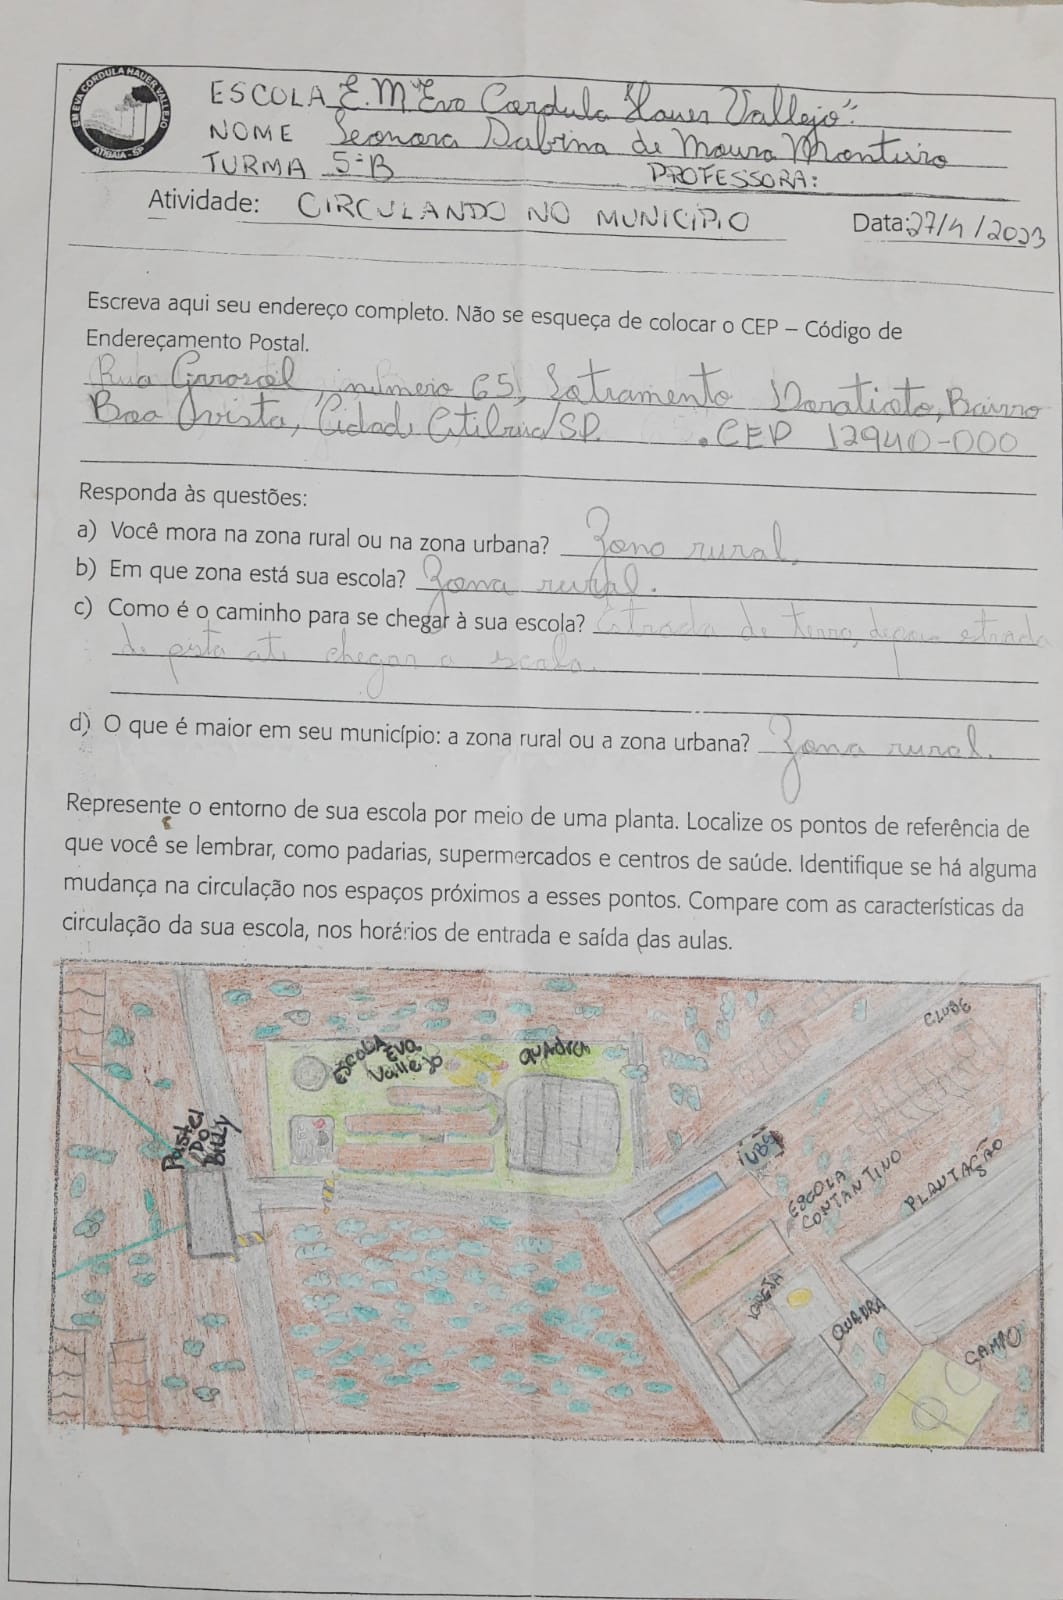 EM EVA CORDULA HAUER VALLEJO
ATIBAIA - SP
ESCOLA E.M."Eva Cordula Hauer Vallejo".
NOME Leonora Sabrina de Moura Monteiro
TURMA 5ºB PROFESSORA:
Atividade: CIRCULANDO NO MUNICÍPIO Data: 27/4/2023
Escreva aqui seu endereço completo. Não se esqueça de colocar o CEP – Código de
Endereçamento Postal.
Rua número 65, Bairro
Boa Cidade Atibaia/SP. . CEP 12940-000
Responda às questões:
a) Você mora na zona rural ou na zona urbana? Zona rural.
b) Em que zona está sua escola? Zona rural.
c) Como é o caminho para se chegar à sua escola? Estrada de terra, depois estrada
de pista até chegar a escola.
d) O que é maior em seu município: a zona rural ou a zona urbana? Zona rural.
Represente o entorno de sua escola por meio de uma planta. Localize os pontos de referência de
que você se lembrar, como padarias, supermercados e centros de saúde. Identifique se há alguma
mudança na circulação nos espaços próximos a esses pontos. Compare com as características da
circulação da sua escola, nos horários de entrada e saída das aulas.
CLUBE
ESCOLA
EVA
Vallejo
QUADRA
Pastel
DO
Billy
UBS
ESCOLA
CONTANTINO
PLANTAÇÃO
IGREJA
QUADRA
CAMPO